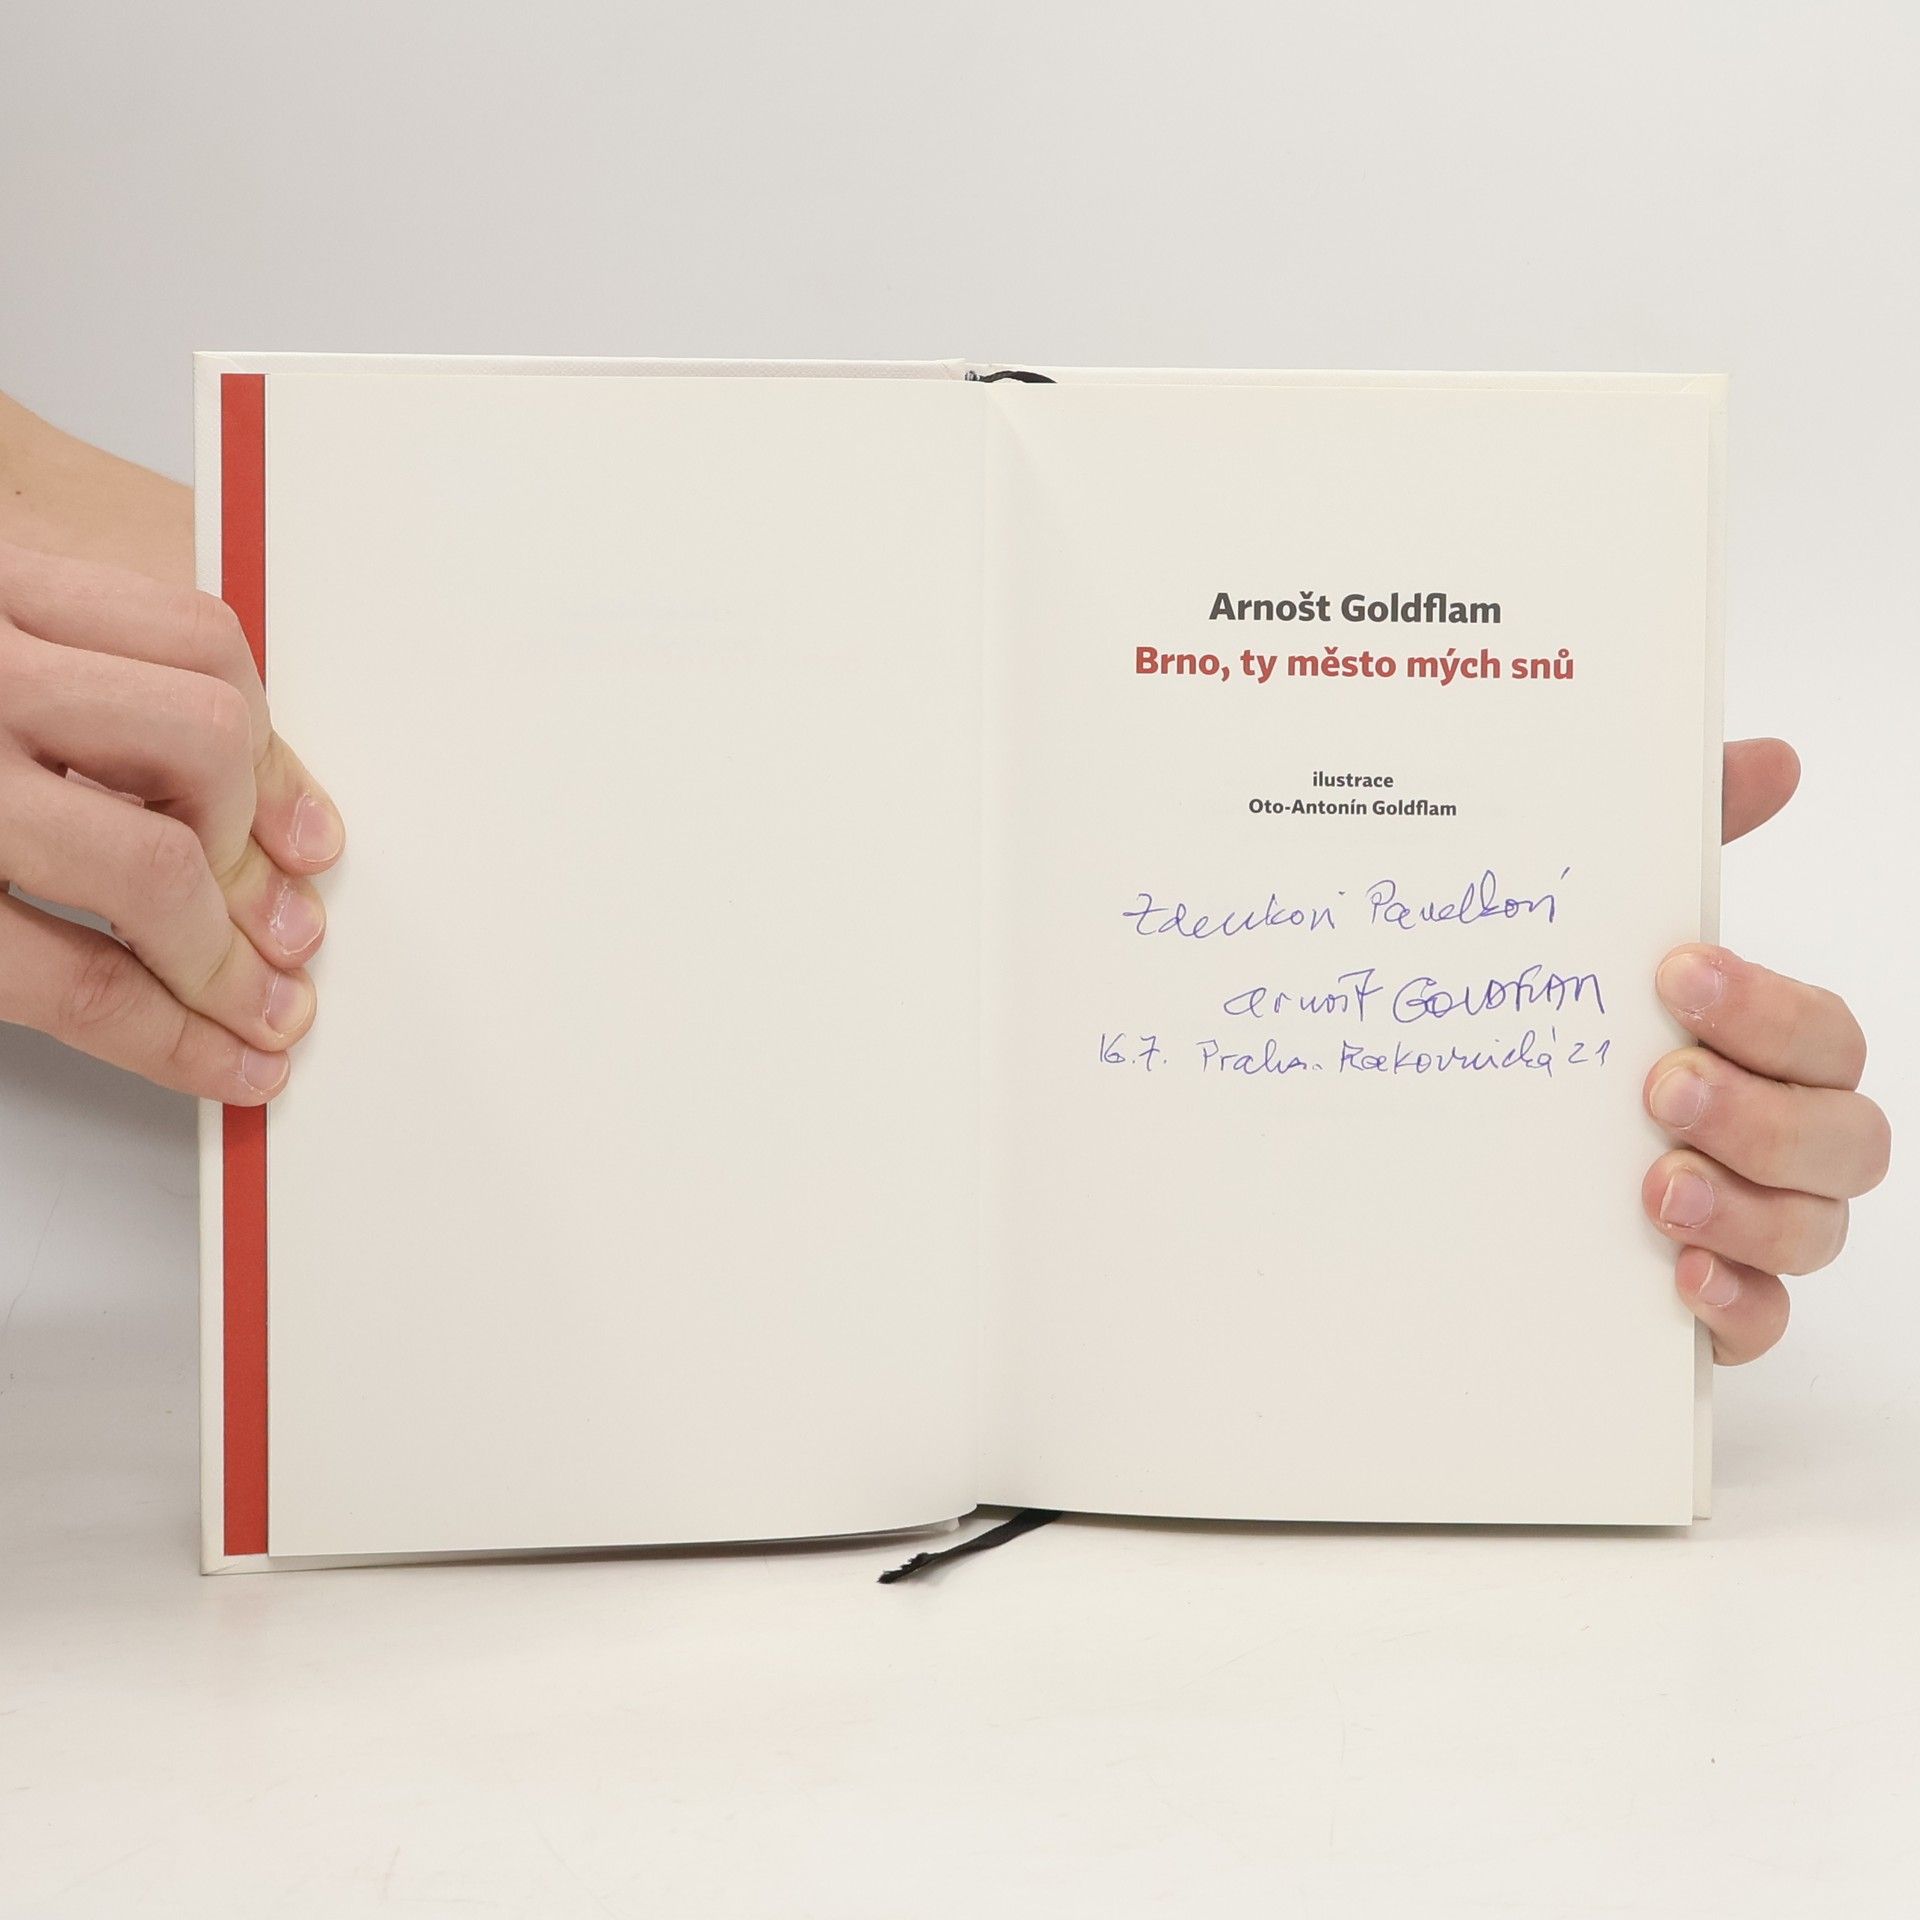 Arnošt Goldflam
Brno, ty město mých snů
ilustrace
Oto-Antonín Goldflam
Zdeňkovi Pavelkovi
Arnošt GOLDFLAM
16.7. Praha. Rakovnická 21